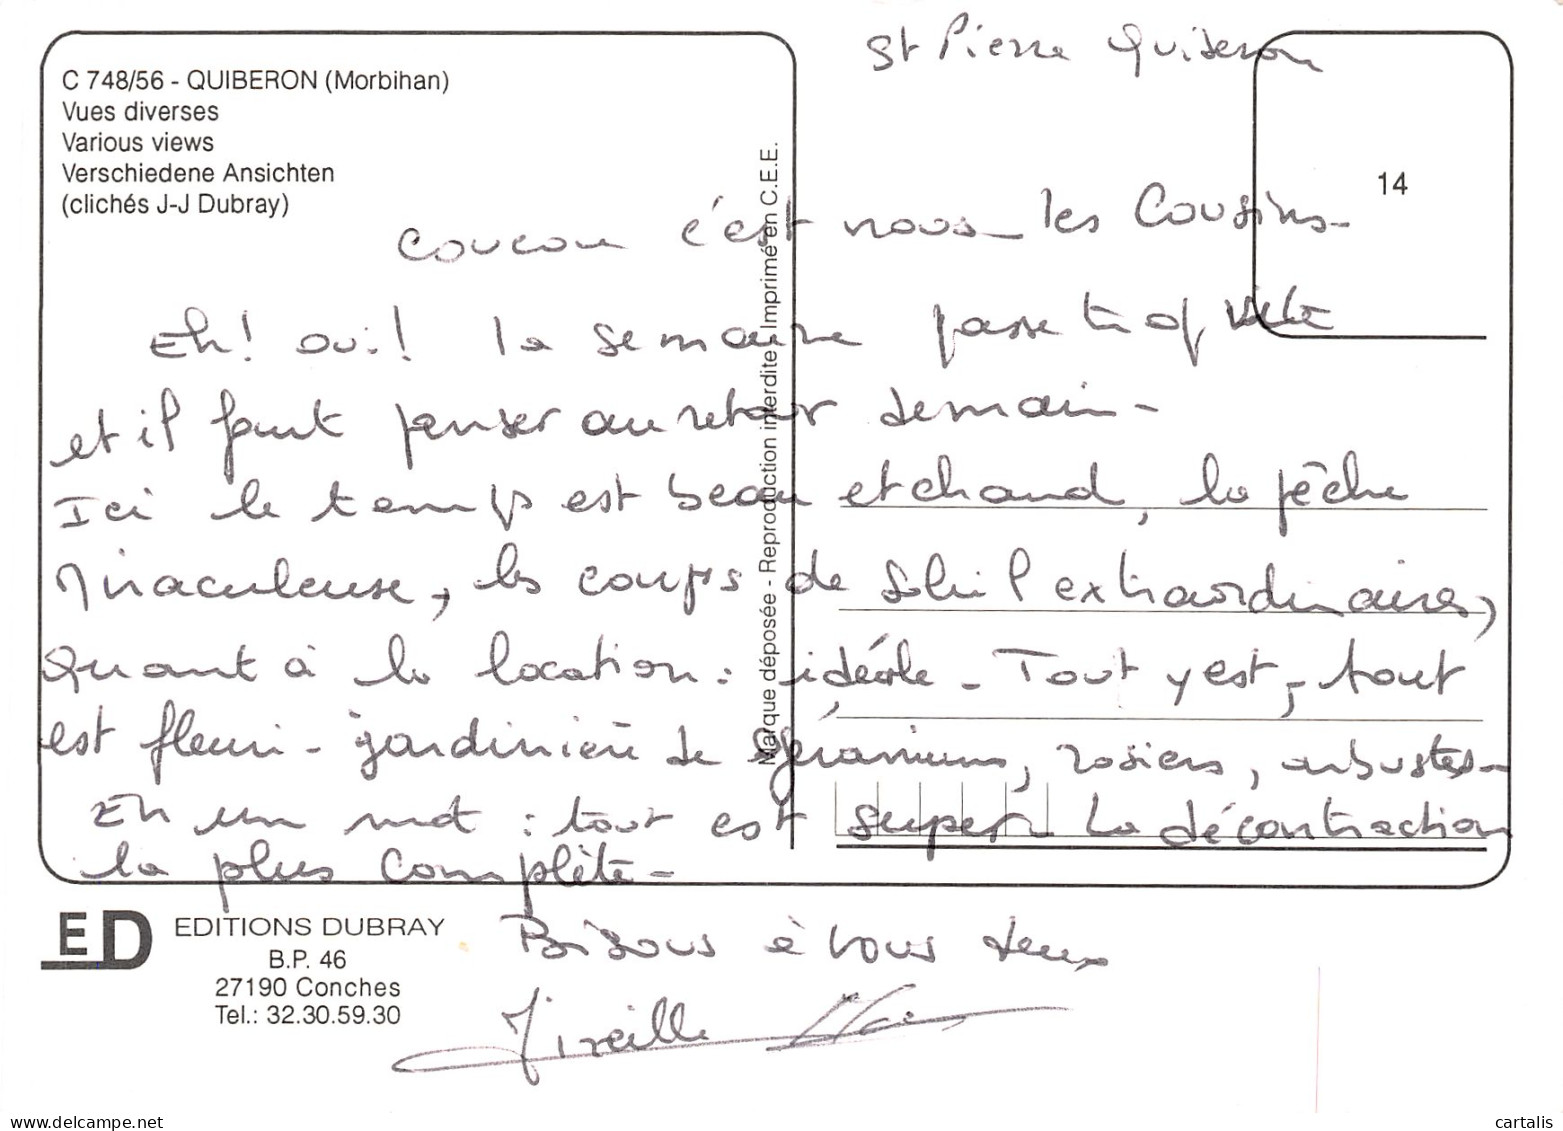 C 748/56 - QUIBERON (Morbihan)
Vues diverses
Various views
Verschiedene Ansichten
(clichés J-J Dubray)
St Pierre Quiberon
14
Marque déposée - Reproduction interdite Imprimé en C.E.E.
Coucou c'est nous les Cousins -
Eh! oui! la semaine passe trop vite
et il faut penser au retour demain -
Ici le temps est beau et chaud, la pêche
Miraculeuse, les coups de soleil extraordinaires,
Quant à la location : idéale - Tout y est, tout
est fleuri - jardinière de géraniums, rosiers, arbustes -
En un mot : tout est super - La décontraction
la plus complète -
Bisous à vous deux
Mireille
ED
EDITIONS DUBRAY
B.P. 46
27190 Conches
Tel.: 32.30.59.30
cartalis